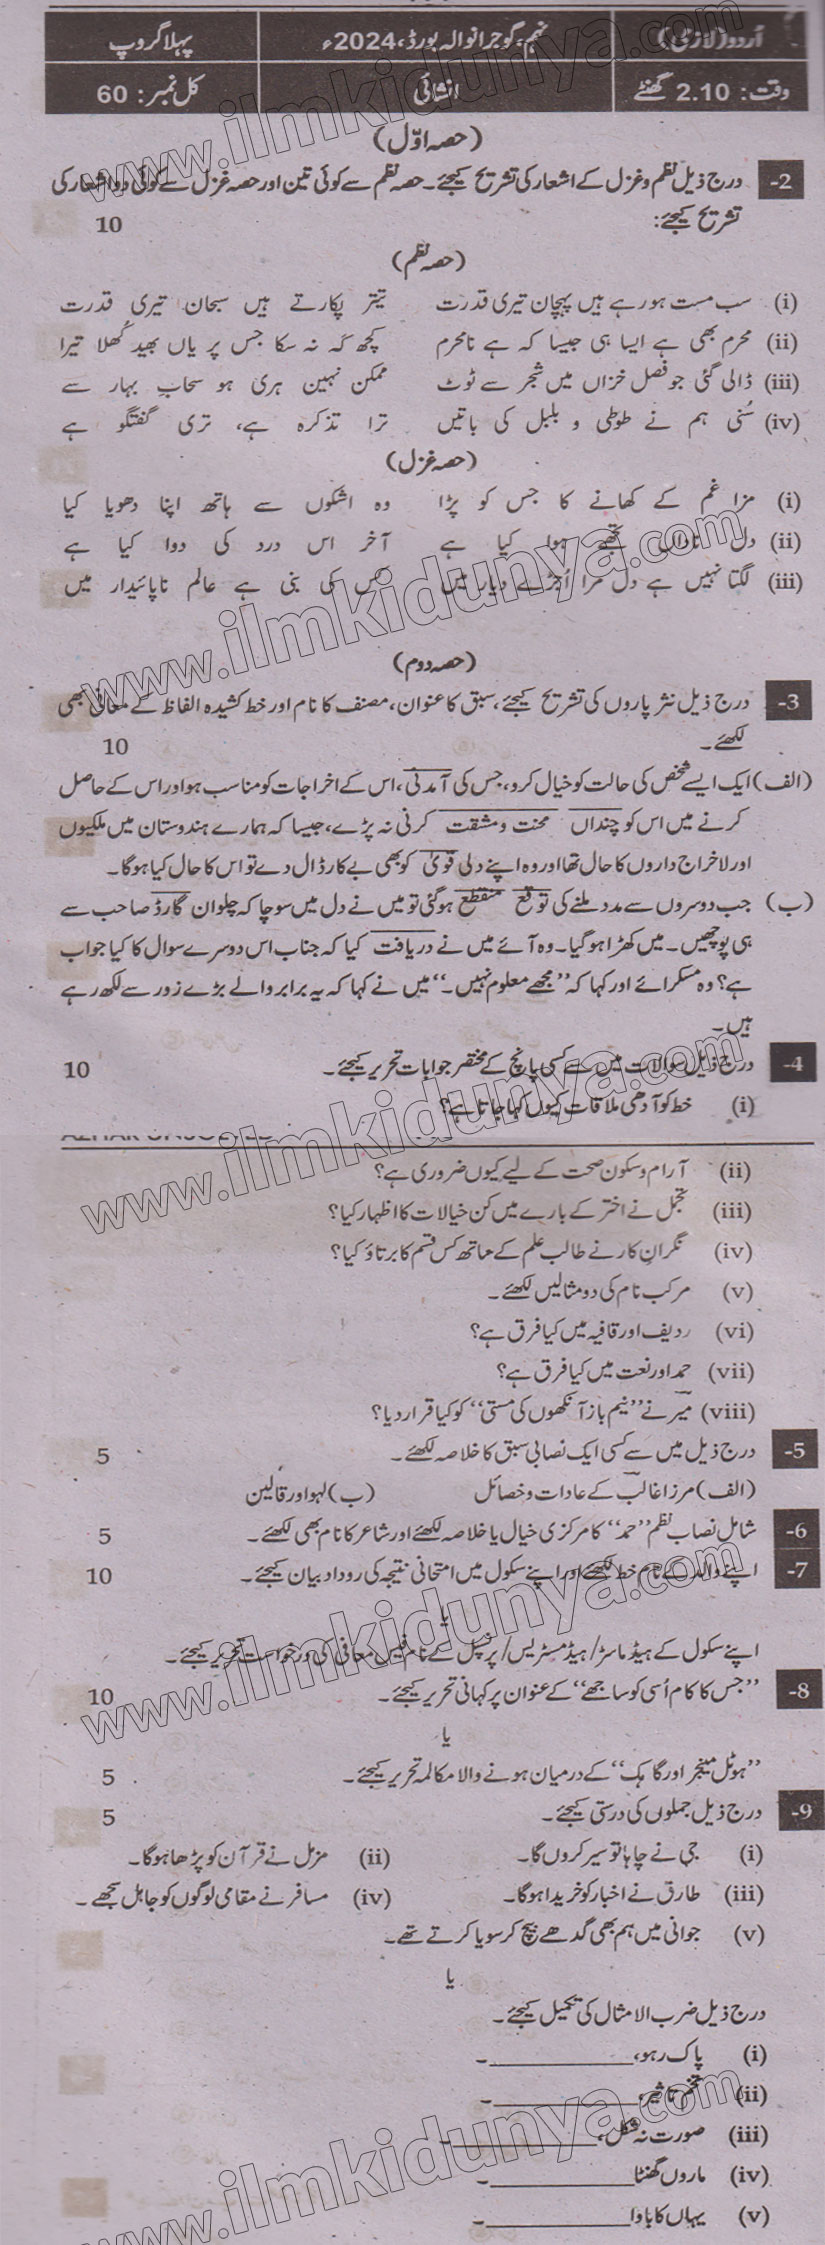 اُردو (لازمی)
نہم، گوجرانوالہ بورڈ، 2024ء
پہلا گروپ
وقت: 2.10 گھنٹے
انشائی
کل نمبر: 60
(حصہ اوّل)
2- درج ذیل نظم و غزل کے اشعار کی تشریح کیجئے۔ حصہ نظم سے کوئی تین اور حصہ غزل سے کوئی دو اشعار کی
تشریح کیجئے: 10
(حصہ نظم)
(i) سب مست ہو رہے ہیں پہچان تیری قدرت تیتر پکارتے ہیں سبحان تیری قدرت
(ii) محرم بھی ہے ایسا ہی جیسا کہ ہے نامحرم کچھ کہہ نہ سکا جس پر یاں بھید کُھلا تیرا
(iii) ڈالی گئی جو فصل خزاں میں شجر سے ٹوٹ ممکن نہیں ہری ہو سحاب بہار سے
(iv) سُنی ہم نے طوطی و بلبل کی باتیں ترا تذکرہ ہے، تری گفتگو ہے
(حصہ غزل)
(i) مزا غم کے کھانے کا جس کو پڑا وہ اشکوں سے ہاتھ اپنا دھویا کیا
(ii) دل ناداں تجھے ہوا کیا ہے آخر اس درد کی دوا کیا ہے
(iii) لگتا نہیں ہے دل مرا اُجڑے دیار میں کس کی بنی ہے عالم ناپائیدار میں
(حصہ دوم)
3- درج ذیل نثر پاروں کی تشریح کیجئے، سبق کا عنوان، مصنف کا نام اور خط کشیدہ الفاظ کے معانی بھی
لکھئے۔ 10
(الف) ایک ایسے شخص کی حالت کو خیال کرو، جس کی آمدنی، اس کے اخراجات کو مناسب ہو اور اس کے حاصل
کرنے میں اس کو چنداں محنت و مشقت کرنی نہ پڑے، جیسا کہ ہمارے ہندوستان میں ملکیوں
اور لاخراج داروں کا حال تھا اور وہ اپنے دلی قویٰ کو بھی بے کار ڈال دے تو اس کا حال کیا ہوگا۔
(ب) جب دوسروں سے مدد ملنے کی توقع منقطع ہو گئی تو میں نے دل میں سوچا کہ چلو ان گارڈ صاحب سے
ہی پوچھیں۔ میں کھڑا ہو گیا۔ وہ آئے میں نے دریافت کیا کہ جناب اس دوسرے سوال کا کیا جواب
ہے؟ وہ مسکرائے اور کہا کہ ”مجھے معلوم نہیں۔“ میں نے کہا کہ یہ برابر والے بڑے زور سے لکھ رہے
ہیں۔
4- درج ذیل سوالات میں سے کسی پانچ کے مختصر جوابات تحریر کیجئے۔ 10
(i) خط کو آدھی ملاقات کیوں کہا جاتا ہے؟
(ii) آرام و سکون صحت کے لیے کیوں ضروری ہے؟
(iii) تجمل نے اختر کے بارے میں کن خیالات کا اظہار کیا؟
(iv) نگران کار نے طالب علم کے ساتھ کس قسم کا برتاؤ کیا؟
(v) مرکب نام کی دو مثالیں لکھئے۔
(vi) ردیف اور قافیہ میں کیا فرق ہے؟
(vii) حمد اور نعت میں کیا فرق ہے؟
(viii) میر نے ”نیم باز آنکھوں کی مستی“ کو کیا قرار دیا؟
5- درج ذیل میں سے کسی ایک نصابی سبق کا خلاصہ لکھئے۔ 5
(الف) مرزا غالب کے عادات و خصائل (ب) لہو اور قالین
6- شامل نصاب نظم ”حمد“ کا مرکزی خیال یا خلاصہ لکھئے اور شاعر کا نام بھی لکھئے۔ 5
7- اپنے والد کے نام خط لکھئے اور اپنے سکول میں امتحانی نتیجہ کی روداد بیان کیجئے۔ 10
یا
اپنے سکول کے ہیڈ ماسٹر/ ہیڈ مسٹریس/ پرنسپل کے نام فیس معافی کی درخواست تحریر کیجئے۔
8- ”جس کا کام اُسی کو ساجھے“ کے عنوان پر کہانی تحریر کیجئے۔ 10
یا
”ہوٹل مینجر اور گاہک“ کے درمیان ہونے والا مکالمہ تحریر کیجئے۔ 5
9- درج ذیل جملوں کی درستی کیجئے۔ 5
(i) جی نے چاہا تو سیر کروں گا۔ (ii) مزمل نے قرآن کو پڑھا ہوگا۔
(iii) طارق نے اخبار کو خریدا ہوگا۔ (iv) مسافر نے مقامی لوگوں کو جاہل سمجھے۔
(v) جوانی میں ہم بھی گدھے بیچ کر سویا کرتے تھے۔
یا
درج ذیل ضرب الامثال کی تکمیل کیجئے۔
(i) پاک رہو، ____________۔
(ii) تخم تاثیر، ____________۔
(iii) صورت نہ شکل، ____________۔
(iv) ماروں گھٹنا ____________۔
(v) یہاں کا باوا ____________۔
www.ilmkidunya.com
www.ilmkidunya.com
www.ilmkidunya.com
www.ilmkidunya.com
www.ilmkidunya.com